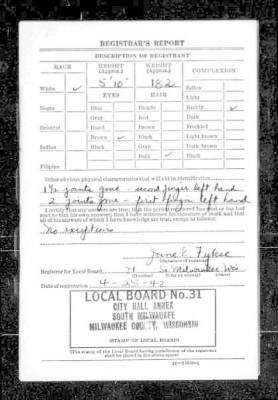 REGISTRAR'S REPORT
DESCRIPTION OF REGISTRANT
RACE HEIGHT (Approx.) WEIGHT (Approx.) COMPLEXION
5' 10" 182
White ✓ EYES HAIR Sallow
Light
Negro Blue Blonde Ruddy ✓
Gray Red Dark
Oriental Hazel Brown Freckled
Brown ✓ Black Light brown
Indian Black Gray Dark brown
Bald ✓ Black
Filipino
Other obvious physical characteristics that will aid in identification
1½ joints gone - second finger left hand
2 joints gone - first finger left hand
I certify that my answers are true; that the person registered has read or has had
read to him his own answers; that I have witnessed his signature or mark and that
all of his answers of which I have knowledge are true, except as follows:
No exceptions
June E.
Registrar for Local Board 31 So. Milwaukee Wis
(Number) (City or county) (State)
Date of registration 4-25-42
LOCAL BOARD No. 31
CITY HALL ANNEX
SOUTH MILWAUKEE
MILWAUKEE COUNTY, WISCONSIN
(STAMP OF LOCAL BOARD)
(The stamp of the Local Board having jurisdiction of the registrant
shall be placed in the above space)